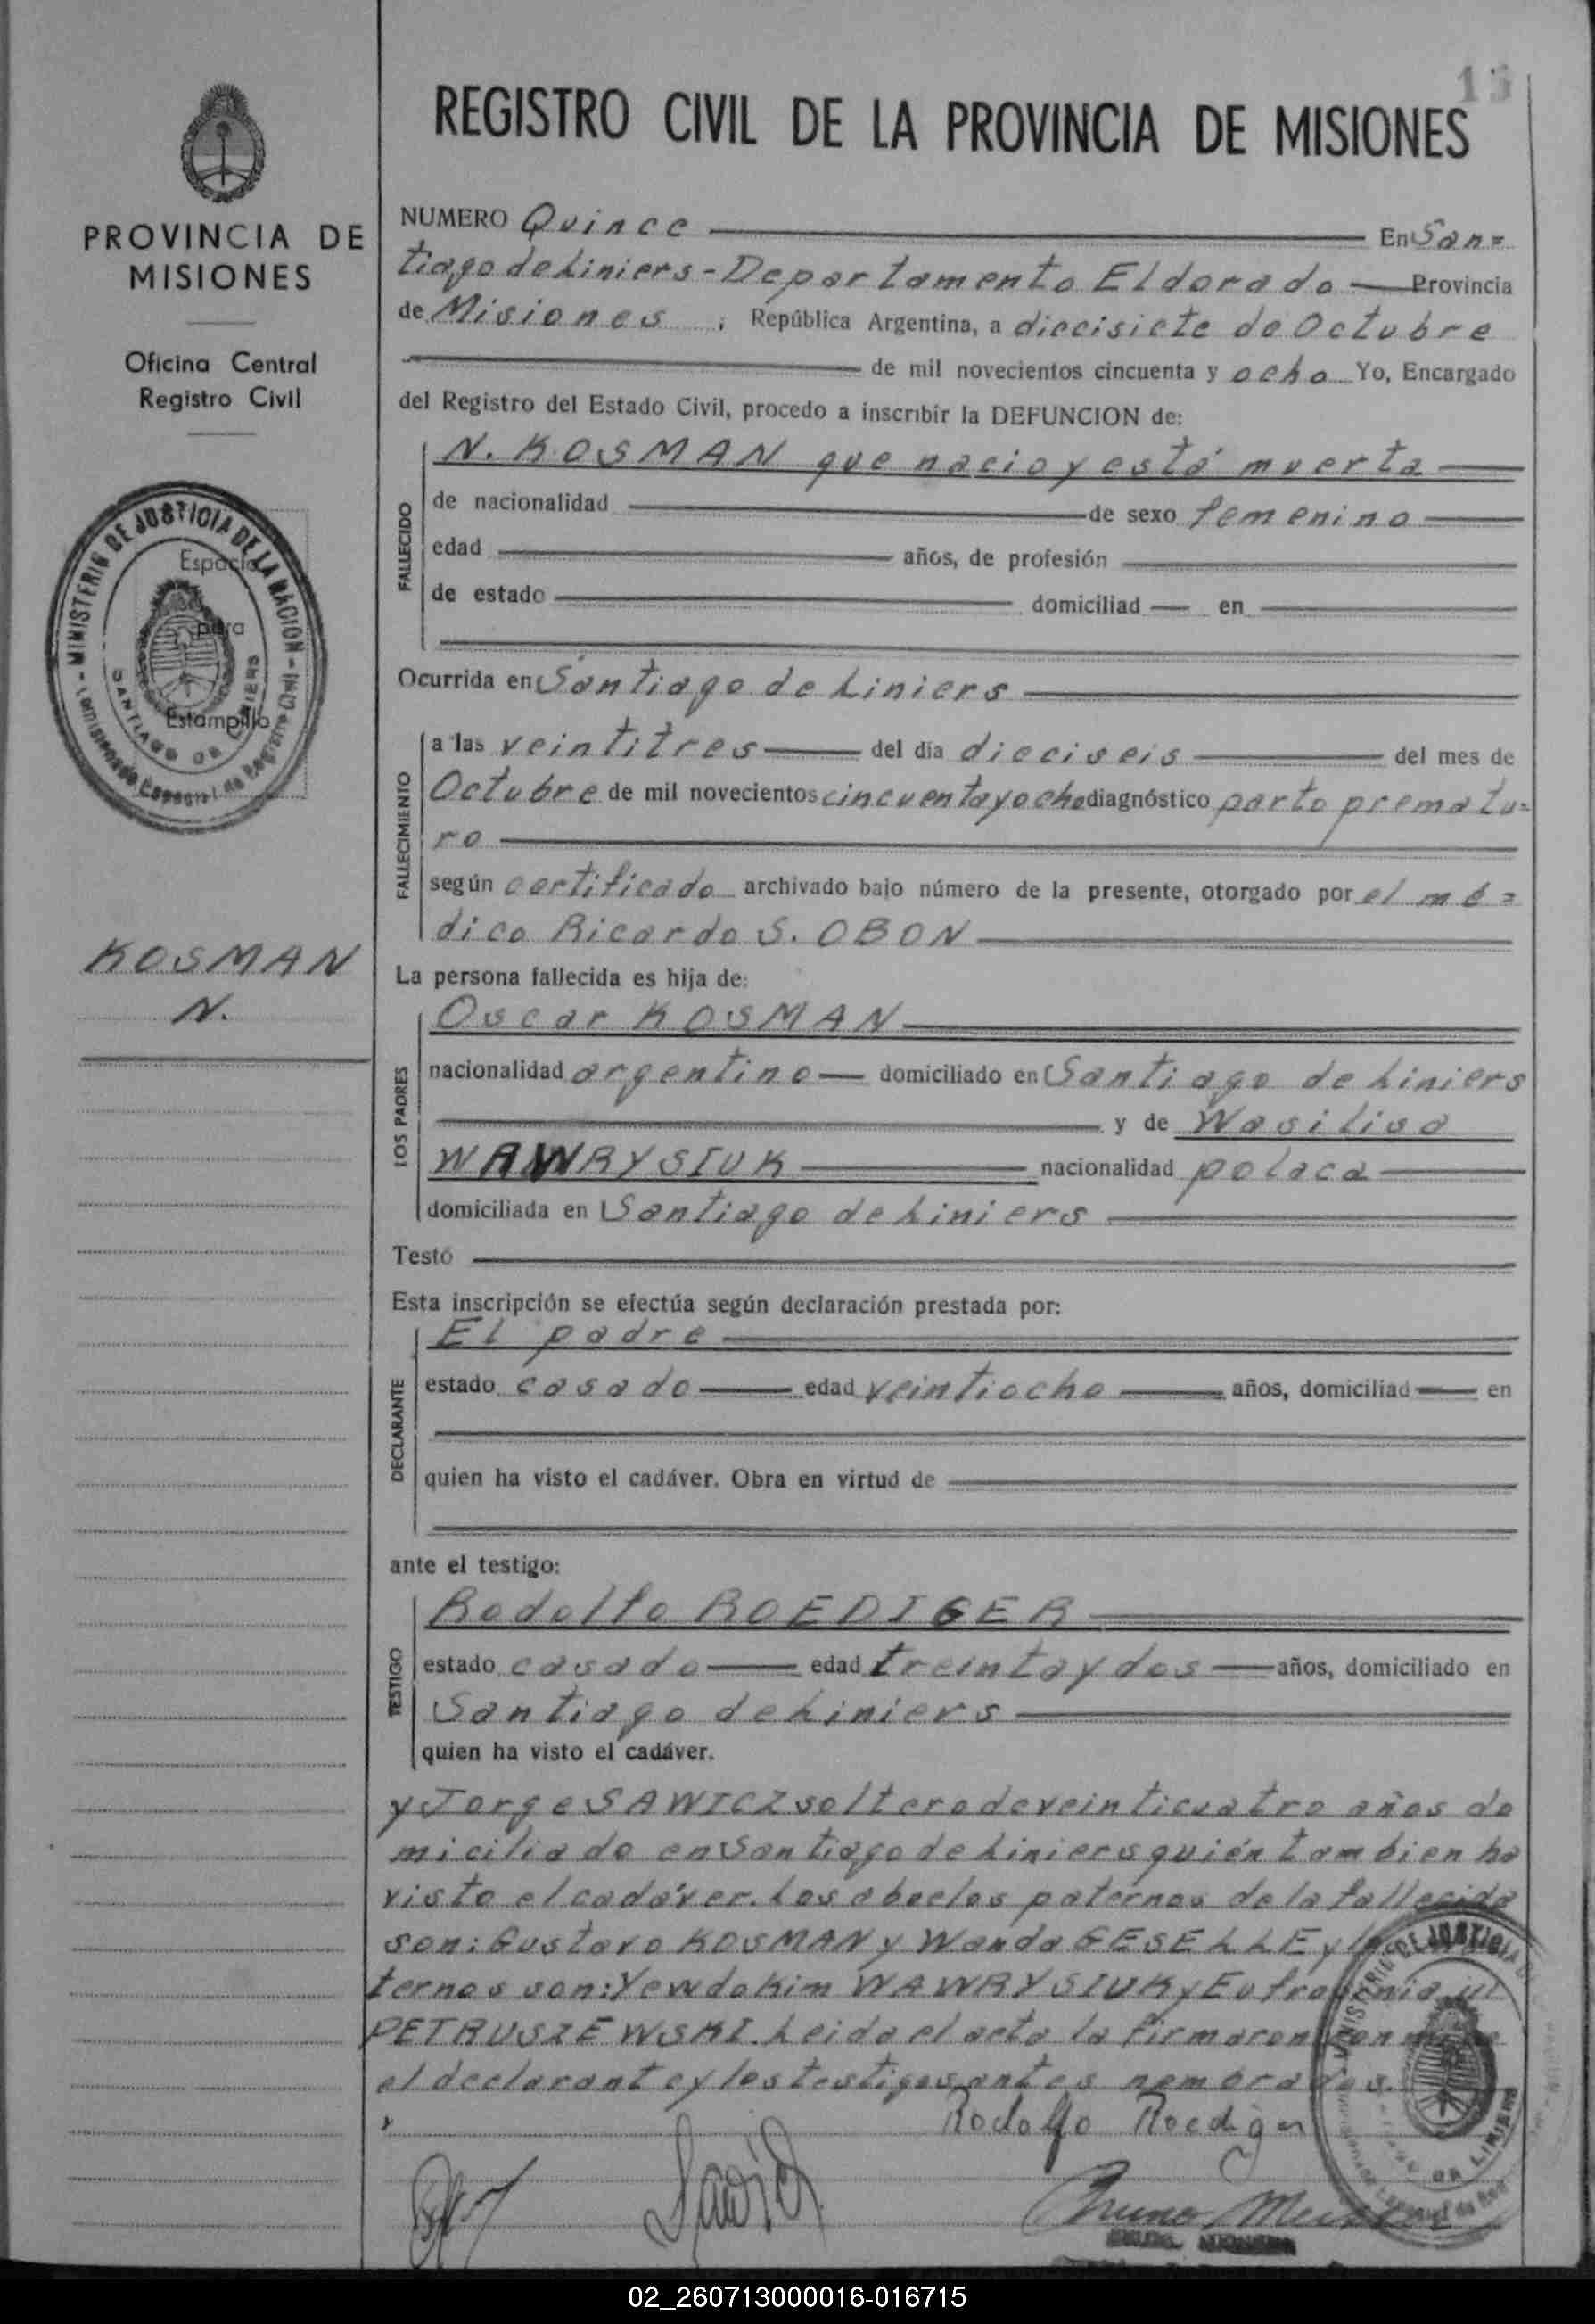 15
REGISTRO CIVIL DE LA PROVINCIA DE MISIONES
PROVINCIA DE
MISIONES
Oficina Central
Registro Civil
MINISTERIO DE JUSTICIA DE LA NACION
SANTIAGO DE LINIERS
Espacio
para
Estampilla
KOSMAN
N.
NUMERO Quince En San=
tiago de Liniers - Departamento Eldorado Provincia
de Misiones, República Argentina, a diecisiete de Octubre
de mil novecientos cincuenta y ocho Yo, Encargado
del Registro del Estado Civil, procedo a inscribir la DEFUNCION de:
FALLECIDO
N. KOSMAN que nacio y está muerta
de nacionalidad de sexo femenino
edad años, de profesión
de estado domiciliad en
Ocurrida en Santiago de Liniers
FALLECIMIENTO
a las veintitres del día dieciseis del mes de
Octubre de mil novecientos cincuenta y ocho diagnóstico parto prematu=
ro
según certificado archivado bajo número de la presente, otorgado por el mé=
dico Ricardo S. OBON
La persona fallecida es hija de:
LOS PADRES
Oscar KOSMAN
nacionalidad argentino domiciliado en Santiago de Liniers
y de Wasilisa
WAWRYSIUK nacionalidad polaca
domiciliada en Santiago de Liniers
Testó
Esta inscripción se efectúa según declaración prestada por:
DECLARANTE
El padre
estado casado edad veintiocho años, domiciliad en
quien ha visto el cadáver. Obra en virtud de
ante el testigo:
TESTIGO
Rodolfo ROEDIGER
estado casado edad treinta y dos años, domiciliado en
Santiago de Liniers
quien ha visto el cadáver.
y Jorge SAWICZ soltero de veinticuatro años do
miciliado en Santiago de Liniers quién tambien ha
visto el cadáver. Los abuelos paternos de la fallecida
son: Gustavo KOSMAN y Wanda GESELLE y
ternos son: Yewdokim WAWRYSIUK y Eufrosinia
PETRUSZEWSKI. Leida el acta la firmaron con
el declarante y los testigos antes nombrados.
Rodolfo Roediger
02_260713000016-016715